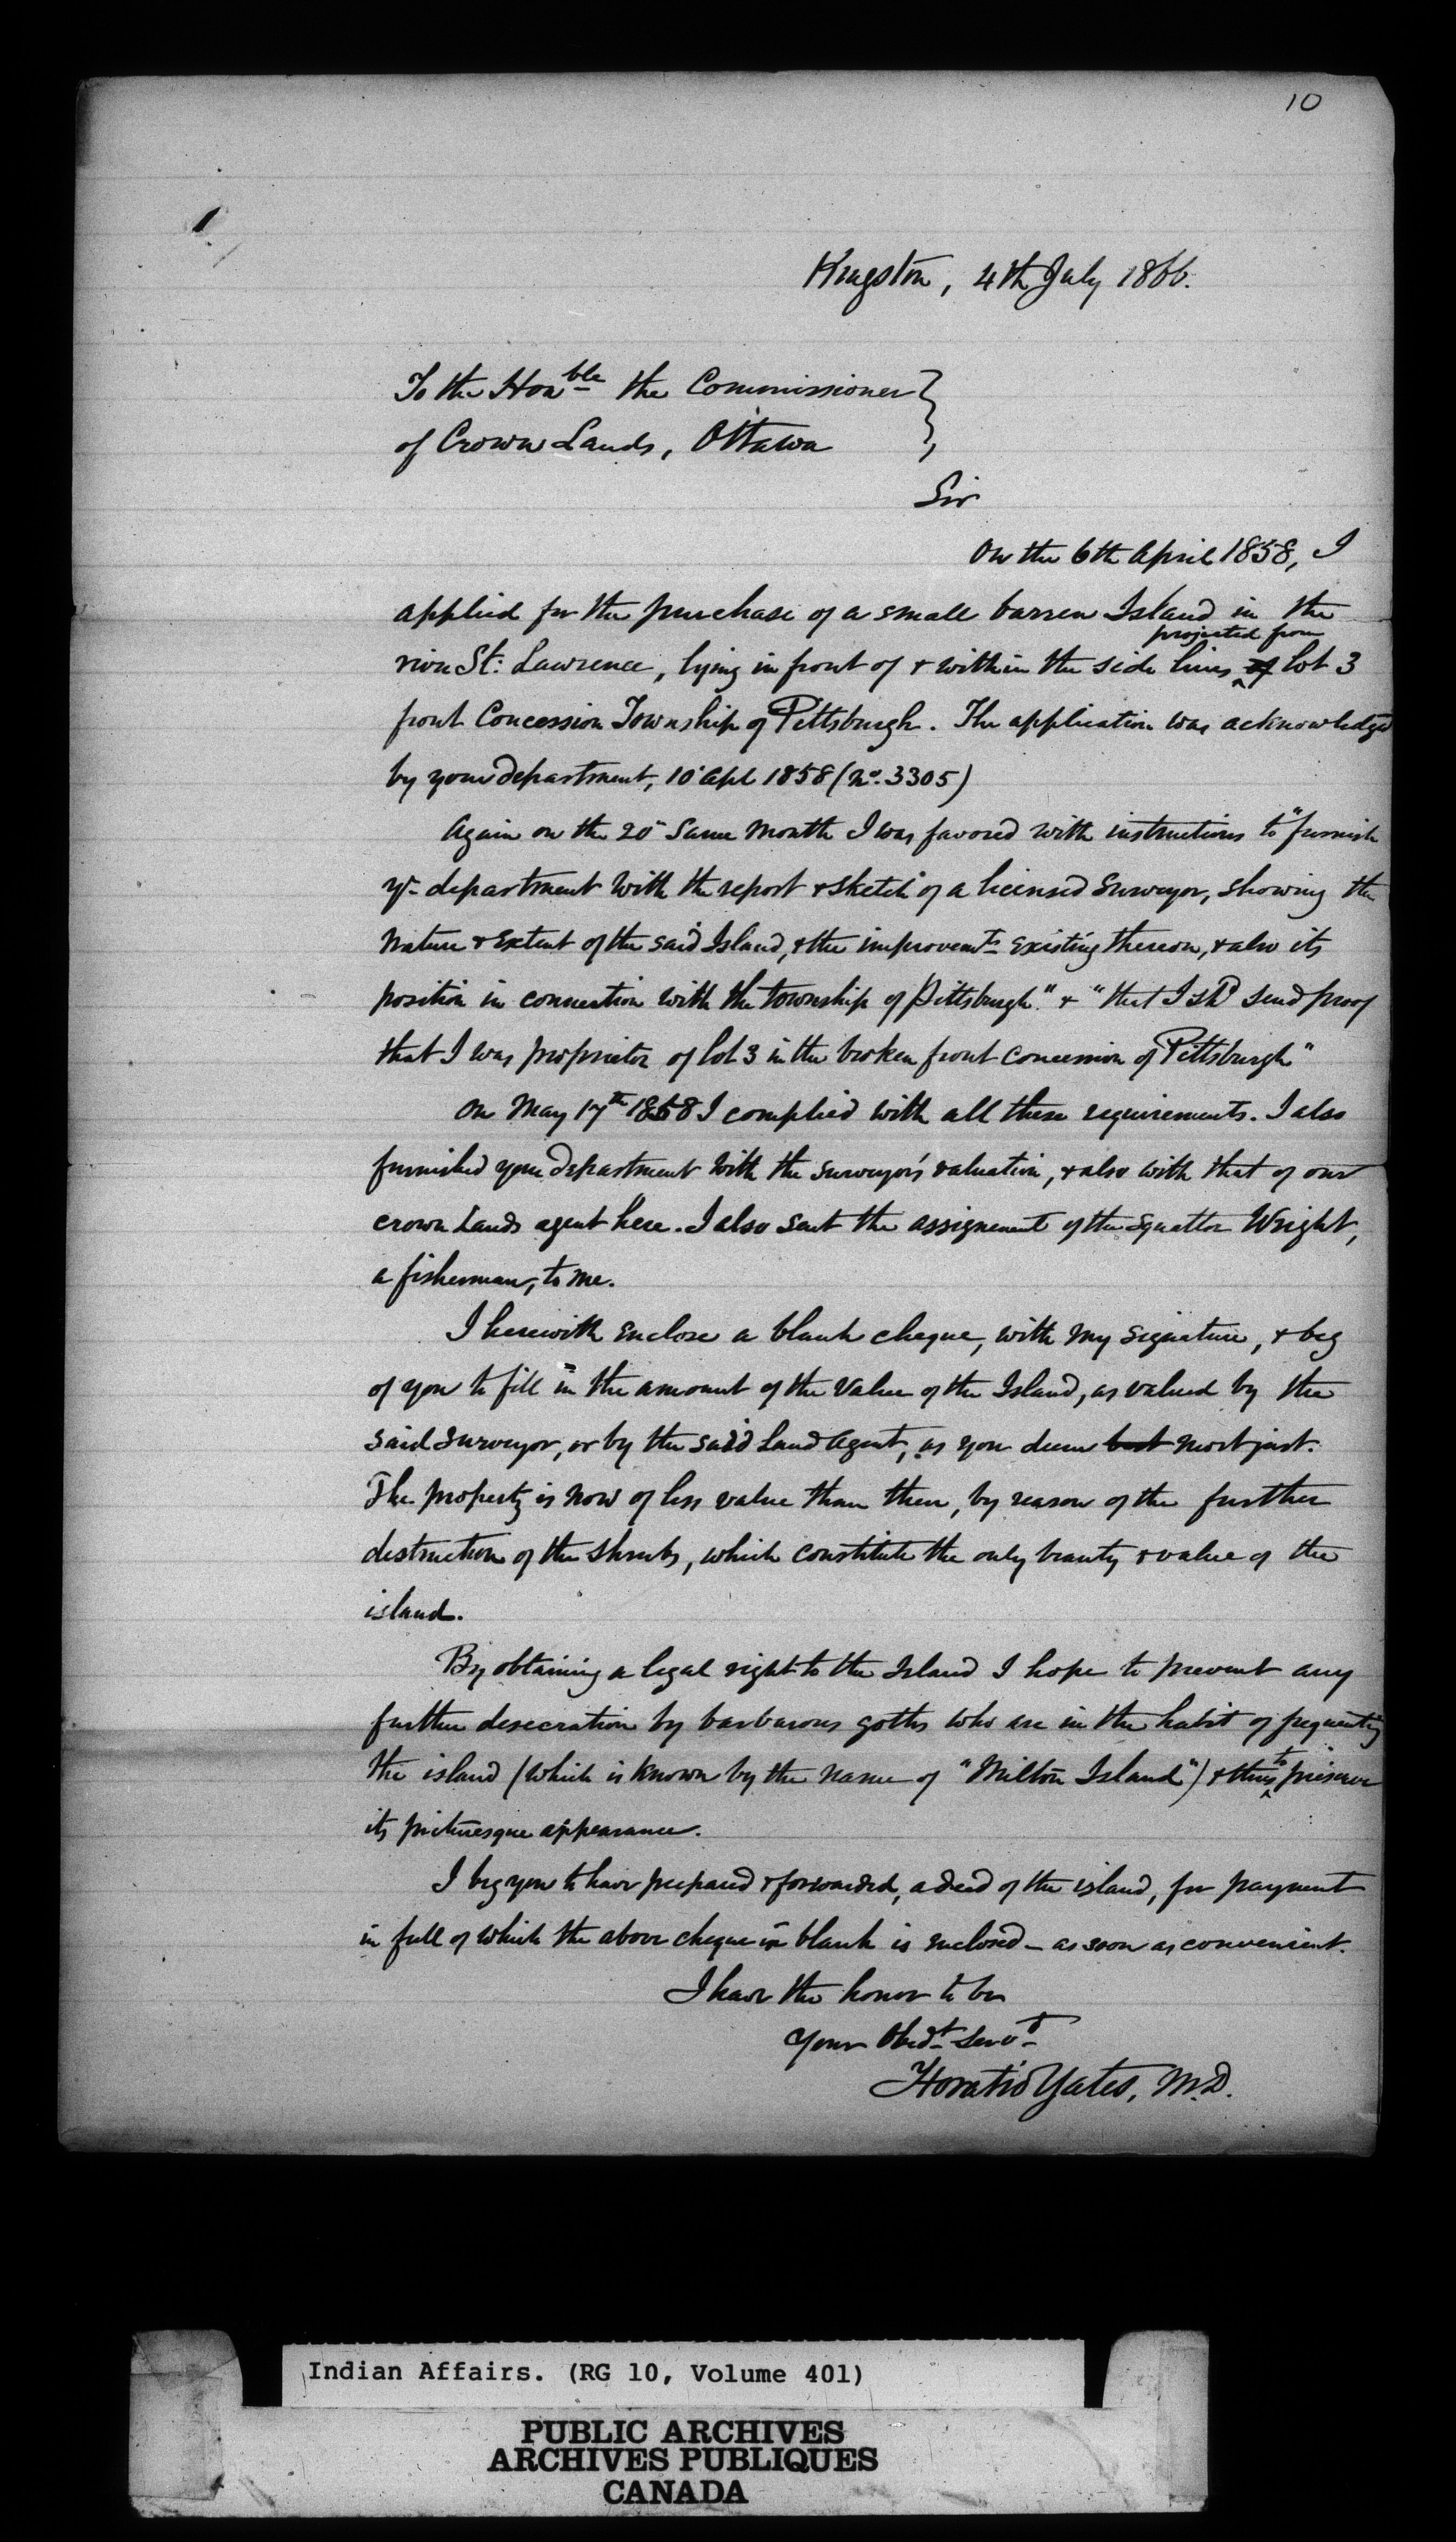 10
Kingston, 4th July 1866.
To the Honble the Commissioner
of Crown Lands, Ottawa
Sir
On the 6th April 1858, I
applied for the purchase of a small barren Island in the
projected from
river St: Lawrence, lying in front of & within the side lines of lot 3
front Concession Township of Pittsburgh. The application was acknowledged
by your department, 10 Apl 1858 (No. 3305)
Again on the 20 same month I was favored with instructions to "furnish
yr department with the report & sketch of a licensed surveyor, showing the
nature & extent of the said Island, & the improvemts existing thereon, & also its
position in connection with the township of Pittsburgh." & "that I shd send proof
that I was proprietor of lot 3 in the broken front concession of Pittsburgh"
On May 17th 1858 I complied with all these requirements. I also
furnished your department with the surveyor's valuation, & also with that of our
crown Lands agent here. I also sent the assignment of the squatter Wright,
a fisherman, to me.
I herewith enclose a blank cheque, with my signature, & beg
of you to fill in the amount of the value of the Island, as valued by the
said surveyor, or by the said Land Agent, as you deem best most just.
The property is now of less value than then, by reason of the further
destruction of the shrubs, which constitute the only beauty & value of the
island.
By obtaining a legal right to the Island I hope to prevent any
further desecration by barbarous goths who are in the habit of frequenting
the island (which is known by the name of "Milton Island") & thus to preserve
its picturesque appearance.
I beg you to have prepared & forwarded, a deed of the island, for payment
in full of which the above cheque in blank is enclosed - as soon as convenient.
I have the honor to be
Your Obedt Servt
Horatio Yates, M.D.
Indian Affairs. (RG 10, Volume 401)
PUBLIC ARCHIVES
ARCHIVES PUBLIQUES
CANADA